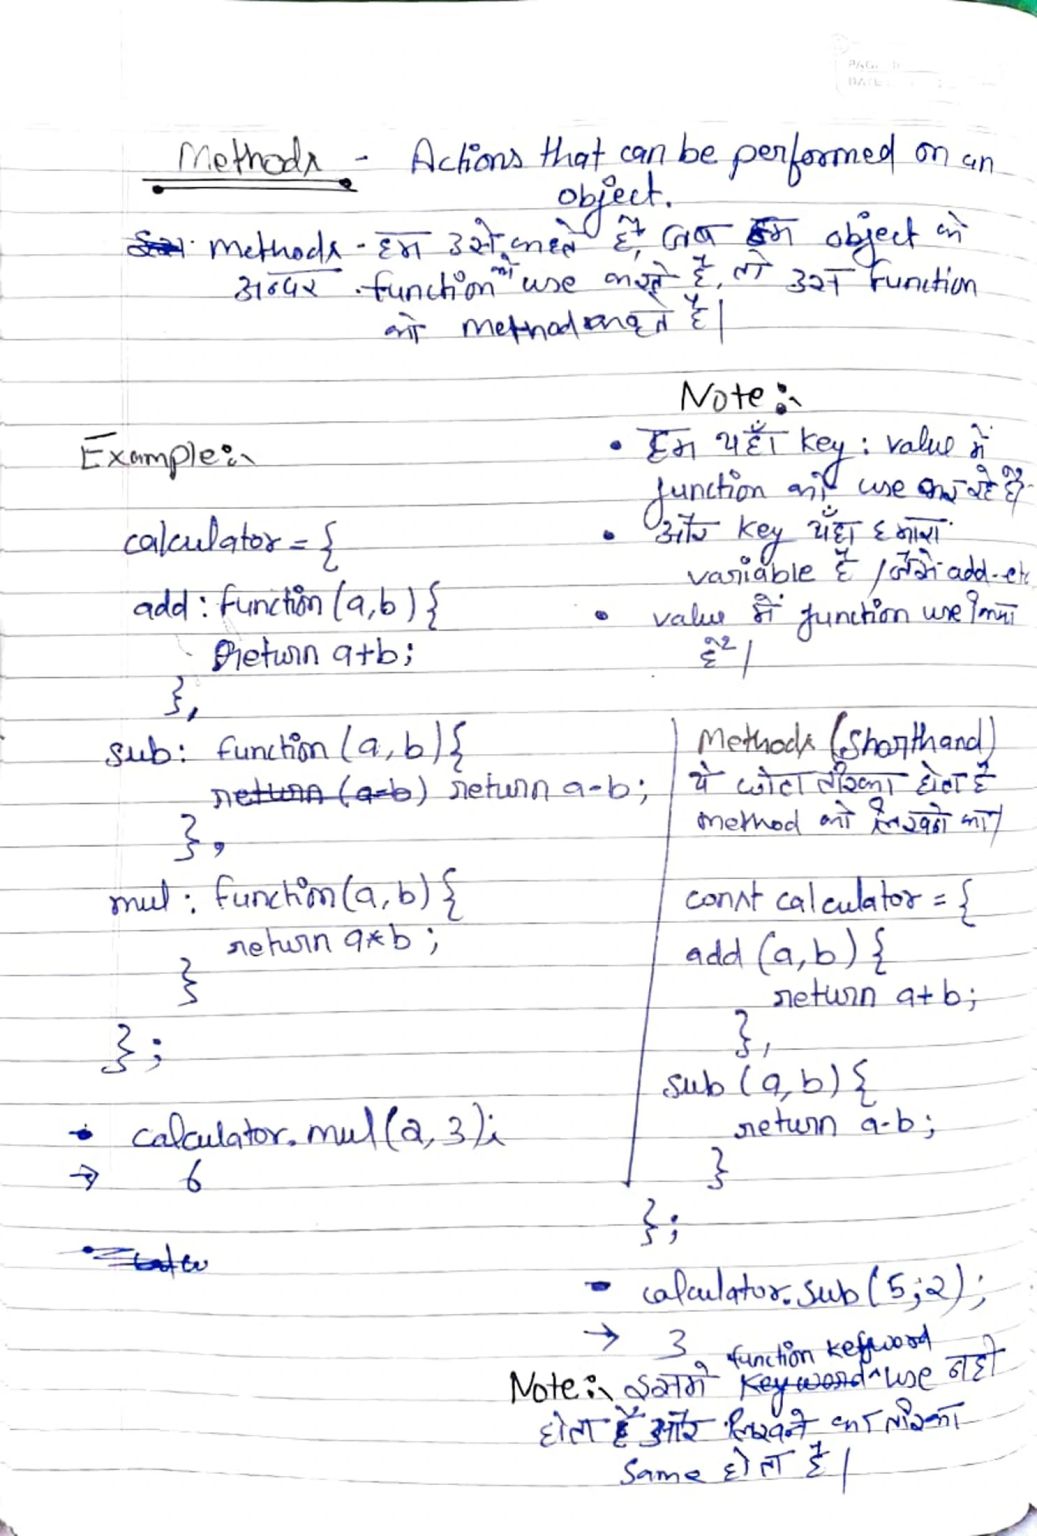 PAGE
DATE
Methods - Actions that can be performed on an
object.
methods - हम उसे कहते हैं, जब हम object के
अन्दर function को use करते हैं, तो उस function
को method कहते हैं|
Example:-
calculator = {
add : function (a,b) {
return a+b;
},
sub: function (a, b) {
return (a-b) return a-b;
},
mul : function (a, b) {
return a*b ;
}
};
calculator. mul (2, 3);
→ 6
Note :-
• हम यहाँ key : value में
function को use कर रहे हैं
• और key यहाँ हमारा
variable है / जैसे add-etc
• value में function use किया
है|
Methods (Shorthand)
ये छोटा तरीका होता है
method को लिखने का|
const calculator = {
add (a, b) {
return a+b;
},
sub (a, b) {
return a-b;
}
};
- calculator. sub (5;2);
→ 3
function keyword
Note:- इसमें keyword ^ use नही
होता है और लिखने का तरीका
same होता है|